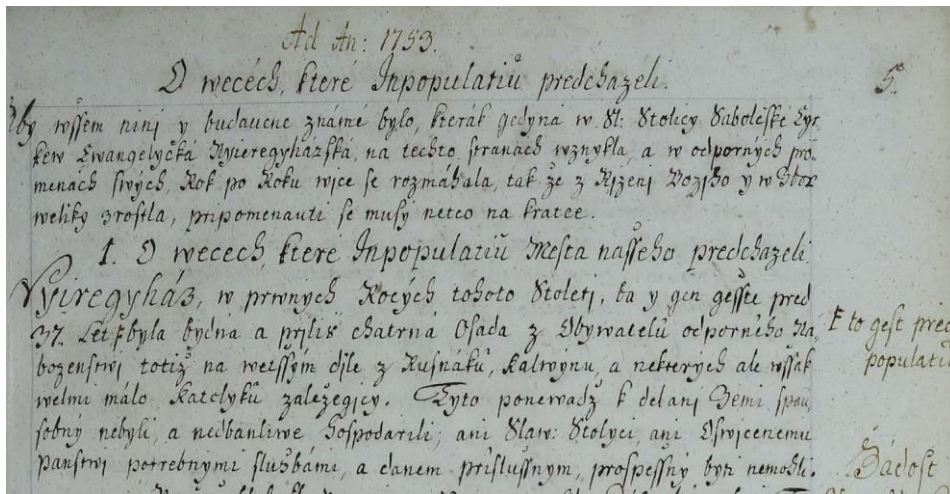 Ad An: 1753.
O wecéch, které Inpopulatiů predchazeli.
5.
Aby wssem ninj y budaucne známé bylo, kterák gedyná w Sl: Stolicy Sabolčské Cyr-
kew Ewangelyčká Nyieregyházská, na techto stranách wznykla, a w odporných pro-
menách swých, Rok po Roku wice se rozmáhala, tak že z Rjzeni Bozjho y w Sbor
weliky zrostla, pripomenauti se musy netco na kratce.
1. O wecech, které Inpopulatiů Mesta nasseho predchazeli.
Nyiregyház, w prwnych Rocých tohoto Stoleti, ba y gen gesste pred
37. Let byla bydna a prjlis chatrná Osáda z Obywatelů odporného Ná-
bozenstwj totiž na wetssým djle z Rusnáků, Kalwynu, a nekterých ale wssak
welmi málo Katolyků zaležegicy. Tyto ponewadž k delani Zemi spau-
sobny nebyli, a nedbanliwe hospodarili; ani Slaw: Stolyci, ani Oswicenemu
Panstwi potrebnymi službámi, a danem prislussnym, prospessný byti nemohli.
to gest pred
populatiů
Žádost